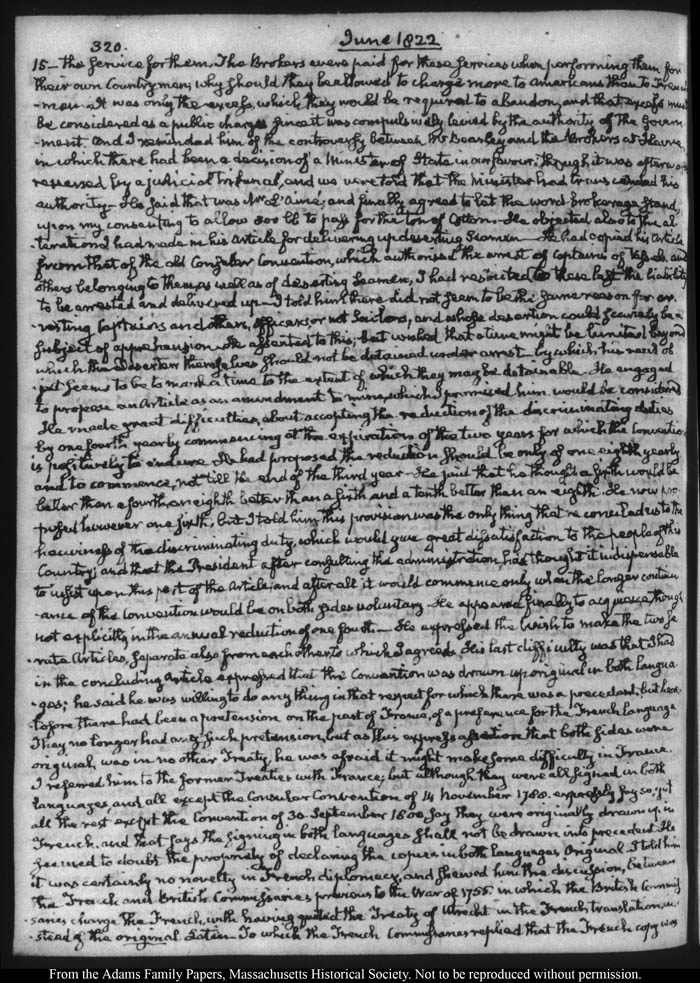 320.
June 1822
15– the service for them. The Brokers were paid for these services when performing them for
their own Countrymen; why should they be allowed to charge more to Americans than to French-
-men. It was only the excess, which they would be required to abandon, and that excess must
be considered as a public charge, since it was compulsively levied by the authority of the Govern-
-ment. And I reminded him of the controversy between Mr Beasley and the Brokers at Havre,
in which there had been a decision of a Minister of State in our favour, though it was afterwards
reversed by a judicial tribunal, and we were told that the Minister had transcended his
authority. He said that was Mr L'ainé; and finally agreed to let the word brokerage stand,
upon my consenting to allow 800 lb to pass for the ton of Cotton. He objected also to the al-
-terations I had made in his Article for delivering up deserting Seamen. He had copied his article
from that of the old Consular Convention, which authorised the arrest of captains of Vessels, and
others belonging to them as well as of deserting Seamen, I had restricted to these last the liability
to be arrested and delivered up. I told him there did not seem to be the same reason for ar-
-resting Captains and other, Officers, or not Sailors, and whose desertion could scarcely be a
subject of apprehension. He assented to this; but wished that a time might be limited beyond
which the Deserters themselves should not be detained under arrest by which his
seems to be to mark a time to the extent of which they may be detainable. He engaged
to propose an Article as an amendment to mine, which I promised him would be considered
He made great difficulties, about accepting the reduction of the discriminating duties
by one fourth yearly commencing at the expiration of the two years for which the Convention
is positively to endure. He had proposed the reduction should be only of one eighth yearly
and to commence, not till the end of the third year. He said that he thought a fifth would be
better than a fourth, an eighth better than a fifth and a tenth better than an eighth. He now pro-
-posed however one sixth; but I told him this provision was the only thing that reconciled us to the
heaviness of the discriminating duty, which would give great dissatisfaction to the people of this
Country; and that the President after consulting the administration, has thought it indispensable
to insist upon this part of the Article; and after all it would commence only when the longer continu-
-ance of the Convention would be on both sides voluntary. He appeared finally to acquiesce though
not explicitly in the annual reduction of one fourth. He expressed the wish to make the two Se-
-rate Articles, separate also from each other to which I agreed. His last difficulty was that I had
in the concluding Article expressed that the Convention was drawn up original in both langua-
-ges; he said he was willing to do any thing in that respect for which there was a precedent, but here-
-tofore there had been a pretension on the part of France, of a preference for the French language
They no longer had any such pretension, but as this express assertion that both sides were
original, was in no other Treaty, he was afraid it might make some difficulty in France.
I referred him to the former Treaties with France; but although they were all signed in both
languages, and all except the Consular Convention of 14 November 1788. expressly say so; yet
all the rest except the Convention of 30. September 1800, say they were originally drawn up in
French, and that says the signing in both languages shall not be drawn into precedent. He
seemed to doubt the propriety of declaring the copies in both languages Original. I told him
it was certainly no novelty in French diplomacy, and shewed him the discussion, between
the French and British Commissaries previous to the War of 1755. in which the British Commis-
-saries charge the French, with having quoted the Treaty of Utrecht in the French translation, in-
-stead of the original Latin. To which the French Commissaries replied that the French copy was
From the Adams Family Papers, Massachusetts Historical Society. Not to be reproduced without permission.